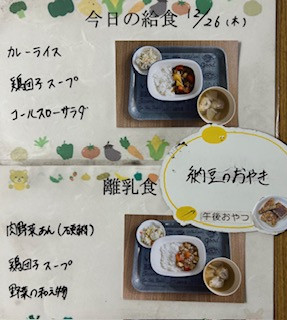 今日の給食 12/26(木)
カレーライス
鶏団子スープ
コールスローサラダ
納豆のおやき
午後おやつ
離乳食
肉野菜あん
鶏団子スープ
野菜の和え物